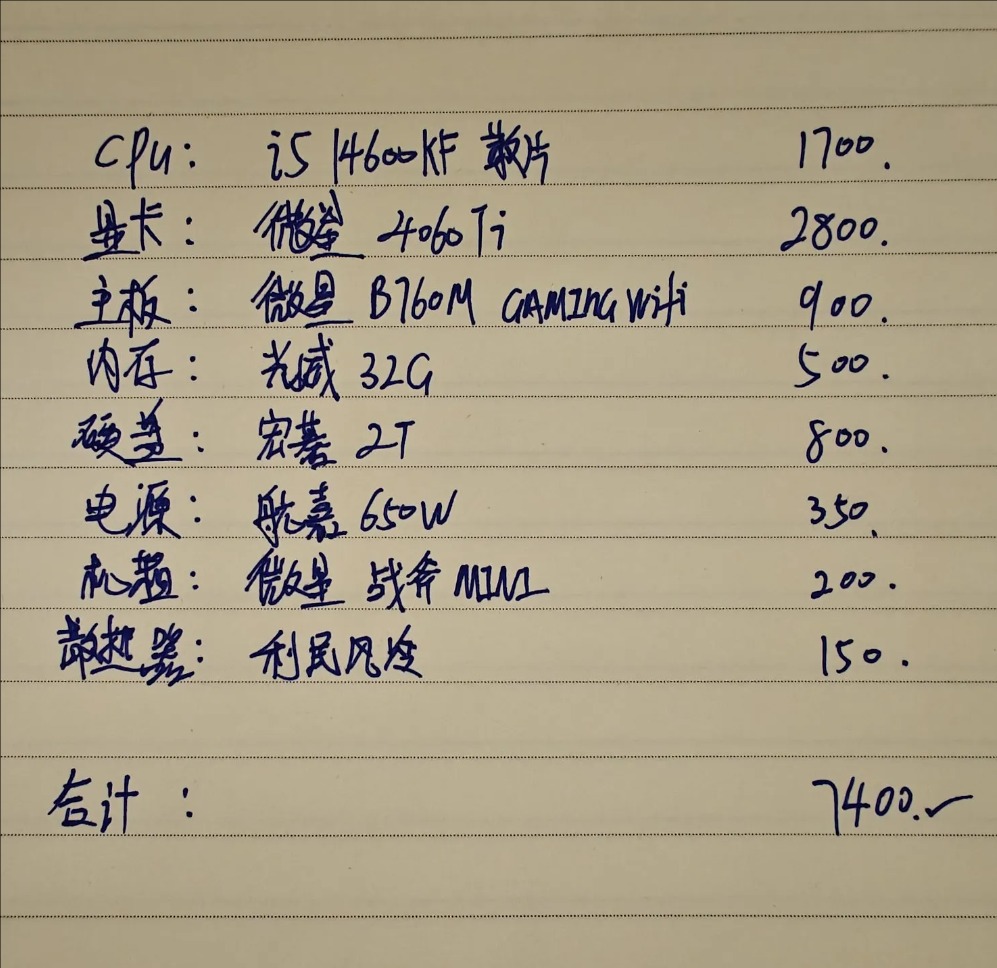 CPU: i5 14600KF 散片 1700.
显卡: 微星 4060Ti 2800.
主板: 微星 B760M GAMING Wifi 900.
内存: 光威 32G 500.
硬盘: 宏碁 2T 800.
电源: 航嘉 650W 350.
机箱: 微星 战斧 MINI 200.
散热器: 利民风冷 150.
合计: 7400.✓